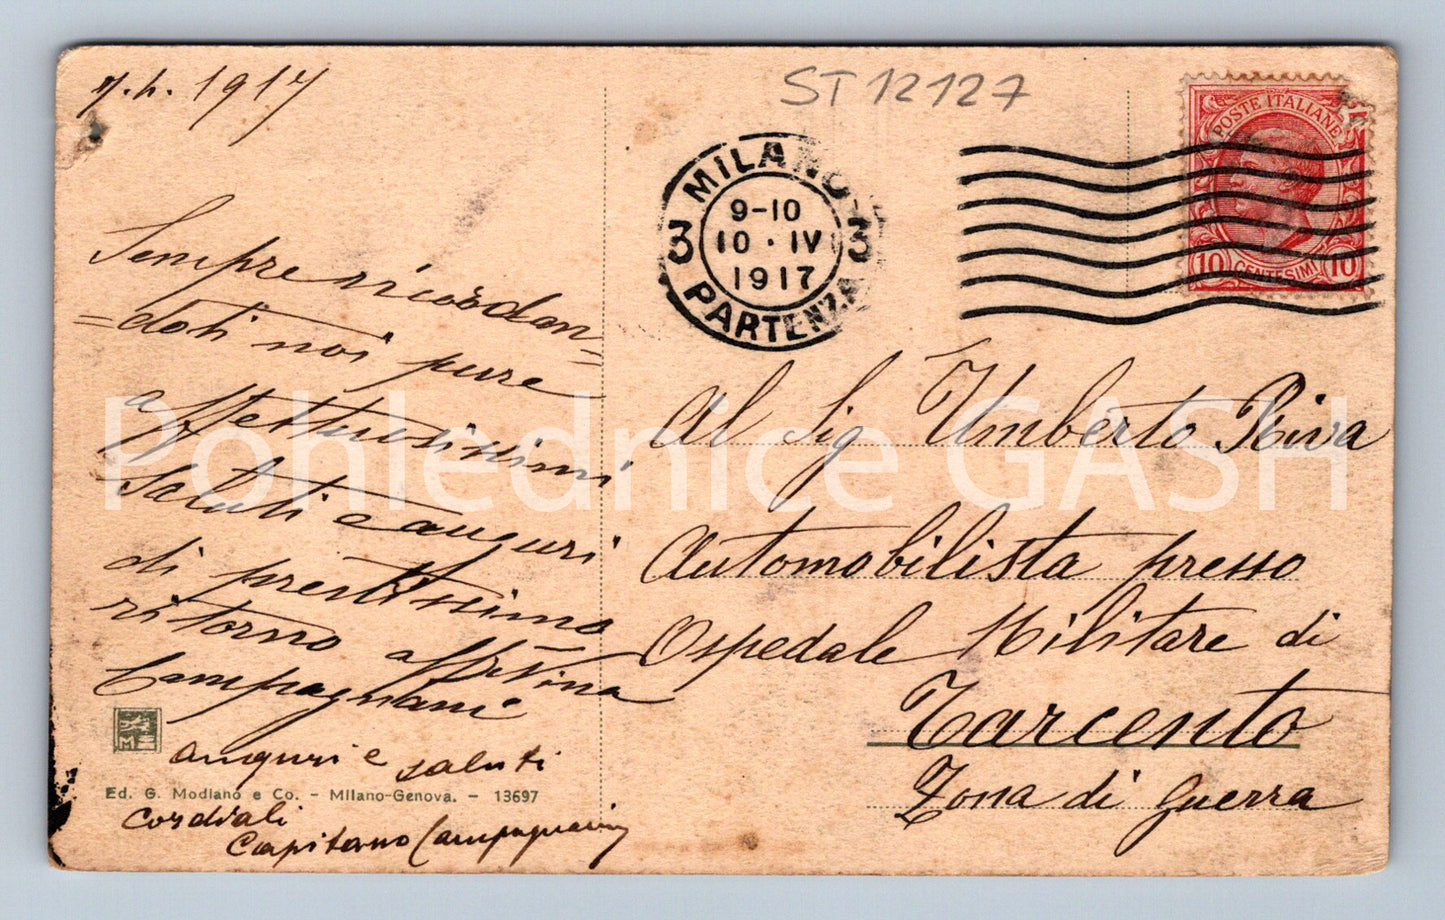 7.4.1917
ST 12127
POSTE ITALIANE
10 CENTESIMI 10
MILANO
3 9-10 3
10 · IV
1917
PARTENZA
Sempre ricordan=
=doti noi pure
affettuosissimi
saluti e auguri
di prestissimo
ritorno aff Nina
Campagnani
auguri e saluti
cordiali
Capitano Campagnani
Ed. G. Modiano e Co. - Milano-Genova. - 13697
Al Sig Umberto Riva
Automobilista presso
Ospedale Militare di
Tarcento
Zona di Guerra
Pohlednice GASH